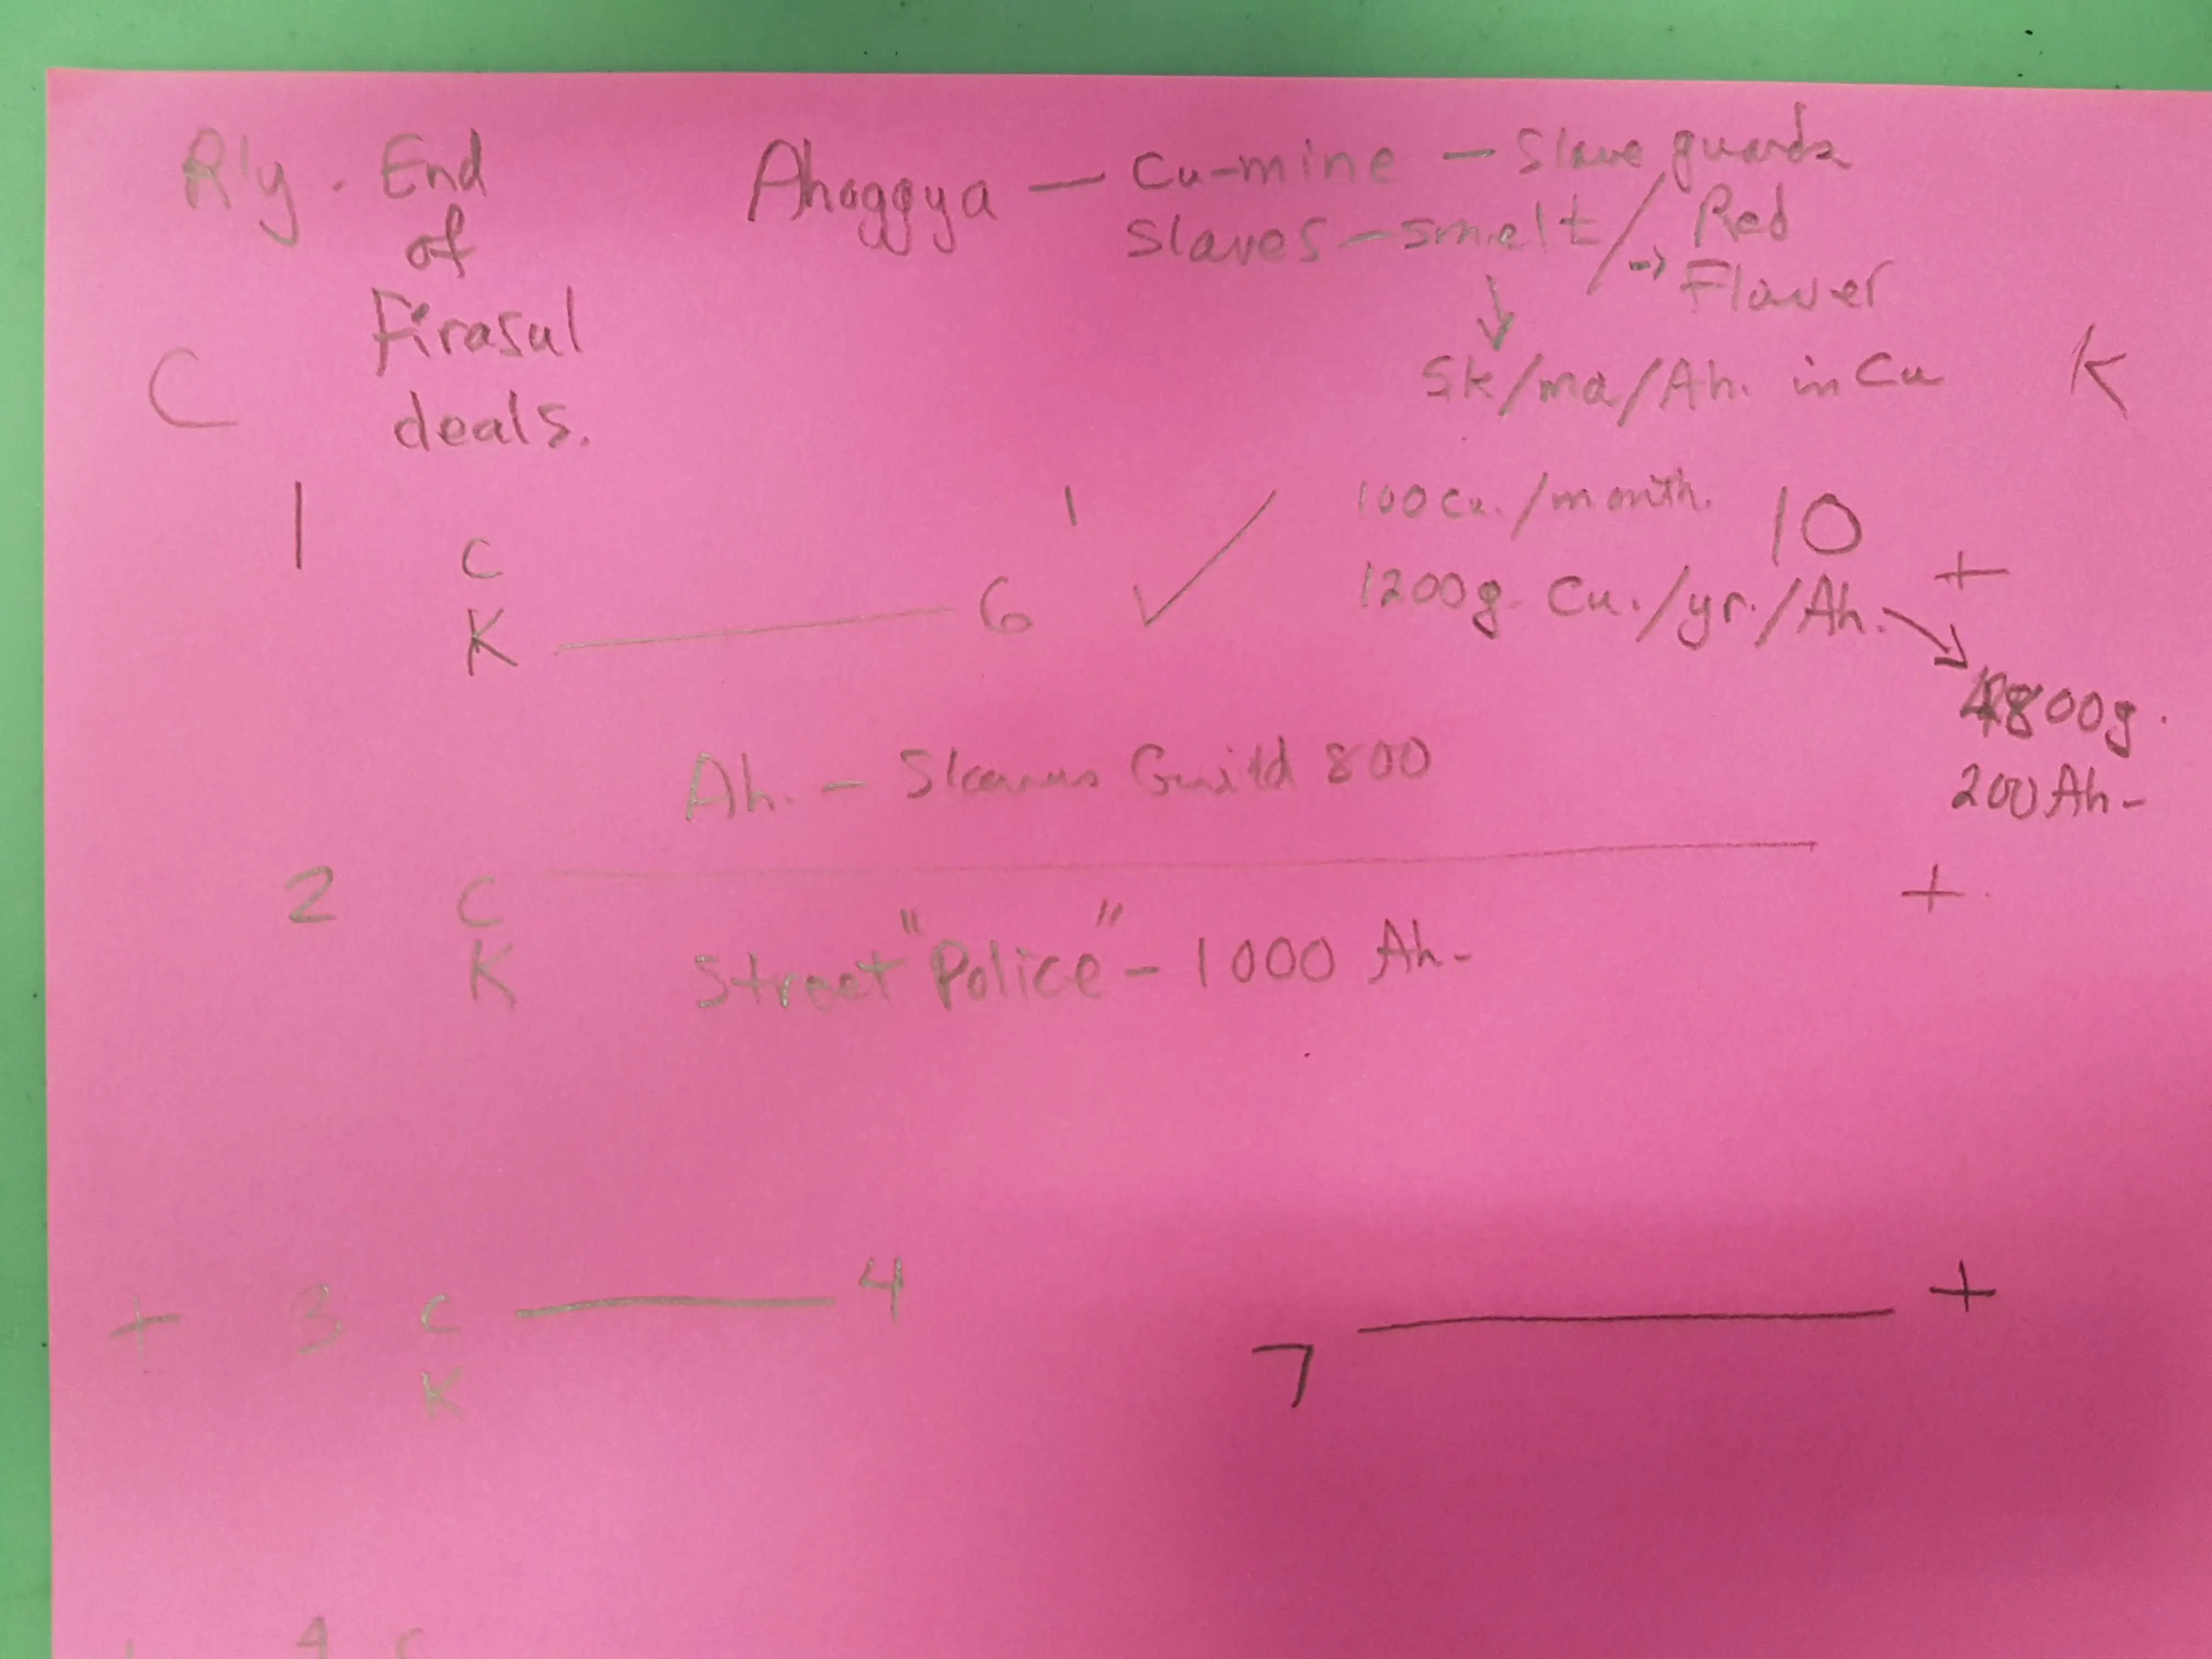 R'y. End
of
Firasul
deals.
Ahoggya — Cu-mine — Slave guards
Slaves — smelt / → Red
Flower
↓
5k/ma/Ah. in Cu
C
K
1
C
K ——— 6
1
✓
100 Cu./month.
10
1200g. Cu./yr./Ah. →
+
4800g.
200 Ah-
Ah. — Guild 800
2
C
K
+
Street "Police" - 1000 Ah-
+ 3 C ——— 4
K
7 ——— +
4 C